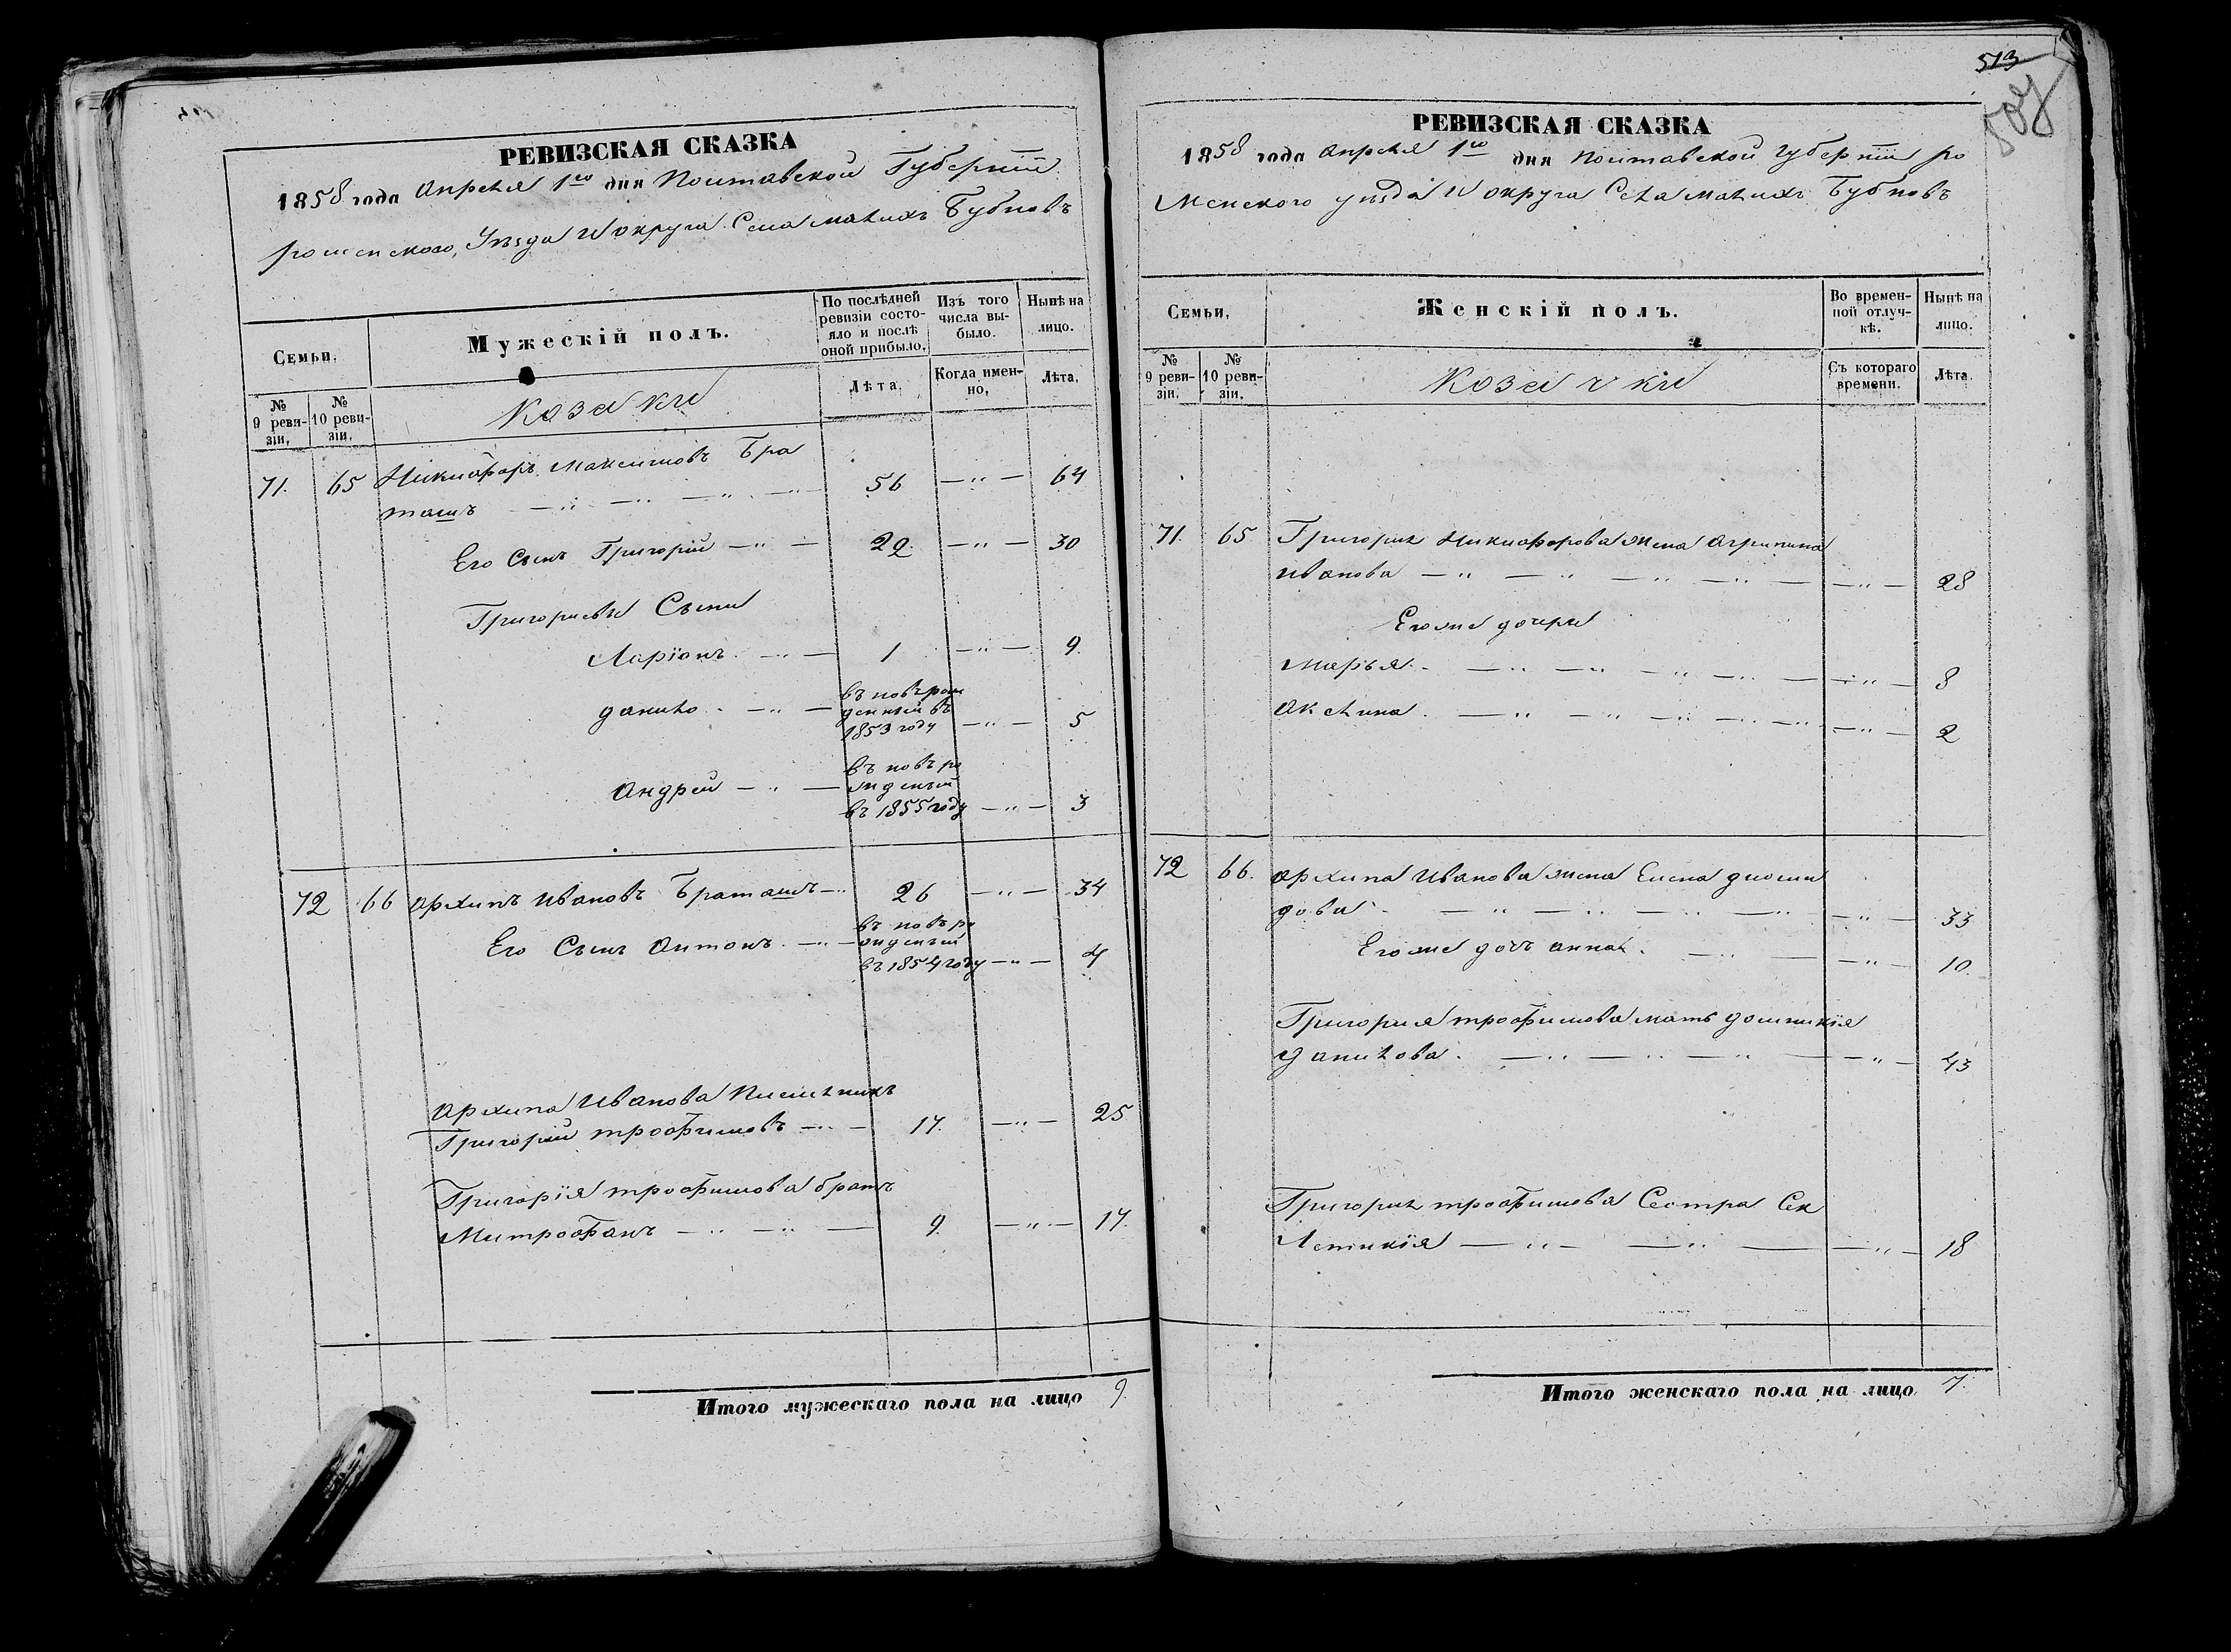 РЕВИЗСКАЯ СКАЗКА
1858 года Апреля 1го дня Полтавской Губерніи
роменского, Уѣзда и округа Села малихъ Бубновъ
Семьи.
Мужескій полъ.
По послѣдней ревизіи состояло и послѣ оной прибыло.
Изъ того числа выбыло.
Нынѣ на лицо.
№ 9 ревизіи.
№ 10 ревизіи.
Козаки
Лѣта.
Когда именно,
Лѣта.
71. 65 Никифоръ Максимовъ Бра
ташъ 56 64
Его Сынъ Григорій 22. 30
Григориевы Сыны
Ларіонъ 1 9.
данило въ повъ рож
денный въ
1853 году 5
Андрей въ повъ ро
жденый
въ 1855 году 3
72 66 Архипъ Ивановъ Браташъ 26 34
Его Сынъ Антонъ въ повъ ро
жденый
въ 1854 году 4
Архипа Иванова
Григорий трофимовъ 17. 25
Григорія трофимова братъ
Митрофанъ 9. 17.
Итого мужескаго пола на лицо 9.
513
РЕВИЗСКАЯ СКАЗКА
1858 года Апреля 1го дня Полтавской Губерніи ро
менского уѣзда и округа Села малихъ Бубновъ
Семьи,
Женскій полъ.
Во временной отлучкѣ.
Нынѣ на лицо.
№ 9 ревизіи.
№ 10 ревизіи.
Козачки
Съ котораго времени.
Лѣта.
71. 65 Григория Никифорова жена Агрипина
Иванова 28
Его же дочери
Марья 8
Акелина 2
72 66. Архипа Иванова жена Елена диоми
дова 33
Его же дочъ анна. 10.
Григория трофимова мать домникія
Данилова. 43
Григория трофимова Сестра Гек
Летикія 18
Итого женскаго пола на лицо 7.